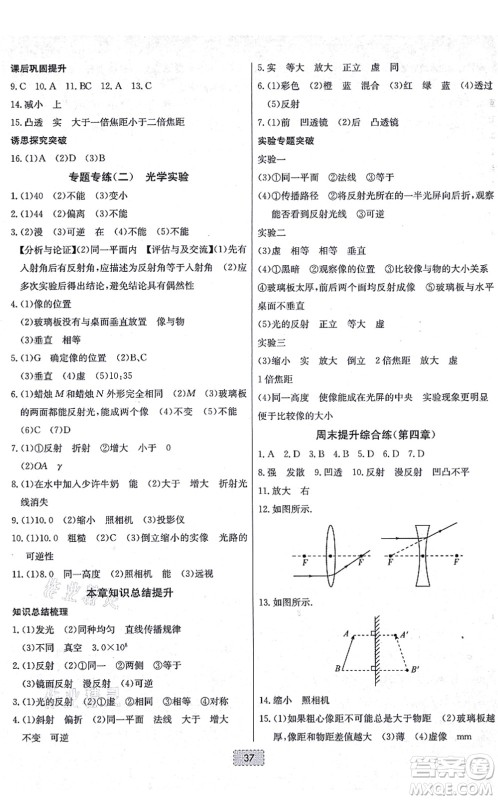 课后巩固提升
9. C　10. A　11. BC　12. A　13. A
14. 减小　上
15. 凸透　实　大于一倍焦距小于二倍焦距
诱思探究突破
16. (1)A　(2)D　(3)B
专题专练(二)　光学实验
1. (1)40　(2)不能　(3)变小
2. (1)44　(2)偏离　(3)不能
3. (2)漫　(3)反射　量角器
【分析与论证】(2)同一平面内　【评估与及交流】(1)先有
入射角后有反射角,应描述为反射角等于入射角　(2)应
多次实验后进行总结,避免规律具有偶然性
4. (1)像的位置
(2)玻璃板没有与桌面垂直放置　像与物
(3)垂直　相等
5. (1)G　确定像的位置　(2)不变
(3)垂直　(4)虚　(5)10:35
6. (1)蜡烛 M 和蜡烛 N 外形完全相同　(2)虚　(3)玻璃板
的两面都能发生光的反射　(4)不变
7. (1)光的反射　折射　增大　小于
(2)OA　γ
8. (1)在水中加入少许牛奶　能　(2)增大　大于　折射光
线消失
9. (1)10.0　(2)缩小　照相机　(3)投影仪
10. (1)10.0　粗糙　(2)C　(3)倒立缩小的实像　光路的
可逆性
11. (1)8.0　同一高度　(2)照相机　能　(3)远视
本章知识总结提升
知识总结梳理
1. (1)发光　(2)同种均匀　直线传播规律
(3)不同　真空　3.0×10⁸
2. (1)反射　(2)①同一　②两　③等于
(3)镜面反射　漫反射　(4)可逆
3. (1)光的反射　(2)①虚　②相等　③相等　④对称
4. (1)斜射　偏折　(2)①同一平面　两　小于　大于　增大
不变　可逆
5. 实　等大　放大　正立　虚　同
6. (1)彩色　(2)橙　蓝　混合　(3)红　(4)虚像
(5)反射
7. (1)前　凹透镜　(2)后　凸透镜
实验专题突破
实验一
(3)①同一平面　法线　②等于
(4)①传播路径　②将反射光所在的半光屏向后折,观察
能否看到反射光　③可逆
实验二
(3)虚　相等　等大　垂直
(4)①黑暗　②观察像的位置　③比较物与像的大小关系
④玻璃板太厚,前后两个面成两个像　⑥玻璃板与水平
桌面不垂直
(5)光的反射　等大　正立　虚
实验三
(3)缩小　实　放大　1 倍　2 倍　虚
1 倍焦距
(4)同一高度　使像成在光屏的中央　实验现象更明显
便于比较像的大小
周末提升综合练(第四章)
1. A　2. D　3. B　4. C　5. A　6. D　7. B
8. 强　发散　9. 凹透　10. 反射　漫反射　凹凸不平
11. 放大　右
12. 如图所示.
F　F　F　F
13. 如图所示.
A　A′　B　B′
14. 缩小　照相机
15. (1)如果粗心像距不可能大于物距　(2)没有玻璃板
例如:实际像距可大于物距　(3)薄　(4)虚像　mm
37